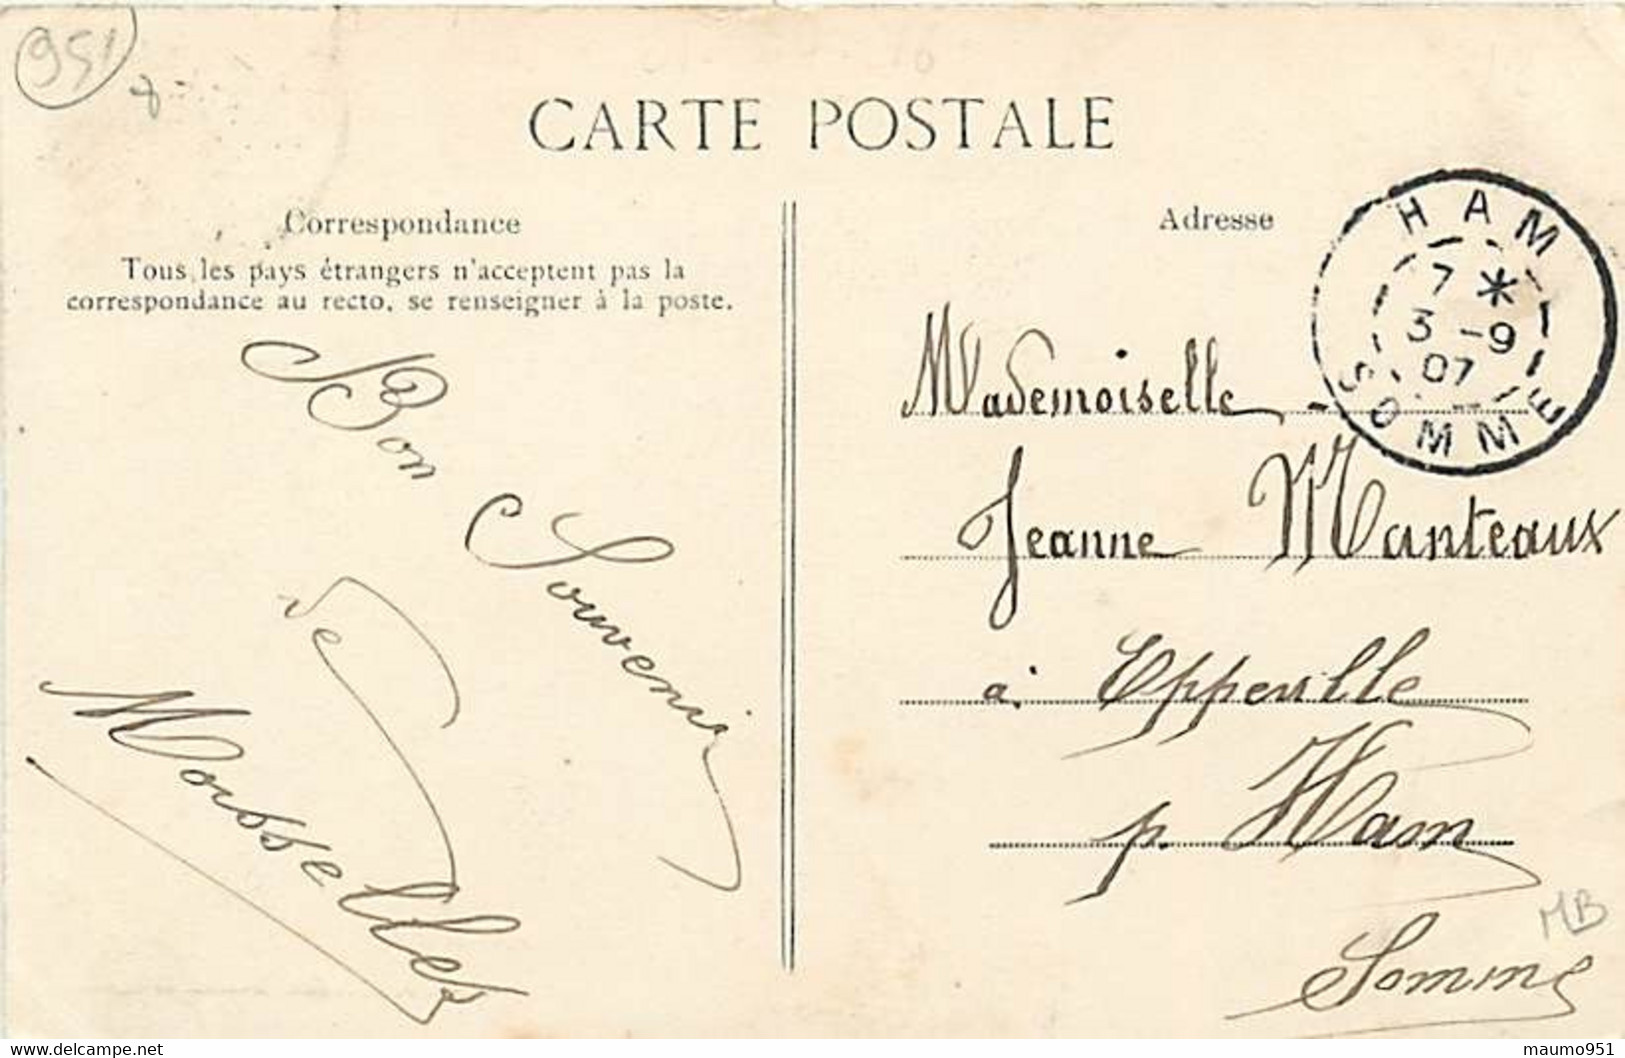 951
CARTE POSTALE
Correspondance
Tous les pays étrangers n'acceptent pas la
correspondance au recto, se renseigner à la poste.
Bon
Souvenir
de
Adresse
HAM
7 *
3 -9
07
SOMME
Mademoiselle
Jeanne Manteaux
à Eppeville
p. Ham
Somme
MB
www.delcampe.net
maumo951